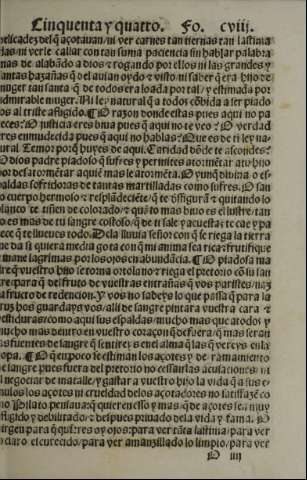 Cinquenta y quatro. Fo. cviij.
delicadez del q̃ açotauan/ni ver carnes tan tiernas tan lastima
das/ni verle callar con tan suma paciencia sin hablar palabra
nas de alabado a dios z rogando por ellos ni las grandes y
tantas hazañas q̃ del auian oydo z visto/ni saber q̃ era hijo de
muger tan santa q̃ de todos era loada por tal/y estimada por
admirable muger. Ni ley natural q̃ a todos cõbida a ser piado
sos al triste afligido. O razon donde estas pues aqui no pa
reces? O justicia eres biua pues q̃ aqui no te veo? O verdad
eres enmudecida pues q̃ aqui no hablas? Que es de ti ley na
tural Temor porq̃ huyes de aqui. Caridad dõde te ascondes?
O dios padre piadoso q̃ sufres y permites atormẽtar a tu hijo
por desatormẽtar a quiẽ mas le atormẽta. O yunq̃ diuina o es
paldas sofridoras de tantas martilladas como sufres. O san
to cuerpo hermoso z resplãdeciẽte/ q̃ te dsfigurã z quitando lo
blanco te tiñen de colorado/z q̃ quãto mas biuo es el lustre/tan
to es mas de tu sangre costoso/q̃ de ti sale y a cuesta te cae y pa
rece q̃ te llueues todo. De la lluuia señor con q̃ se riega la tierra
me da si quiera media gota con q̃ mi anima sea rica z frutifique
z mane lagrimas por los ojos en abundãcia. O piadosa ma
dre q̃ vuestro hijo se torna ortolano z riega el pretorio cõ su san
gre/para q̃ del fruto de vuestras entrañas q̃ vos paristes/naz
ca fructo de redencion. Y vos no sabeys lo que passa q̃ para la
cruz hos guardays pos/alli de sangre pintara vuestra cara z
vestiduras/como aqui sus espaldas/mucho mas que a todos y
mucho mas dentro en vuestro coraçon que de fuera/q̃ mas serã
las fuentes de sangre q̃ sentireys en el alma q̃ las q̃ vereys en la
ropa. O q̃ en poco se estiman los açotes y de ramamiento
de sangre pues fuera del pretorio no cessan las acusaciones ni
el negociar de matalle/y gastar a vuestro hijo la vida q̃ a sus e
mulos los açotes ni crueldad de los açotadores no satisfaze co
mo Pilato pensaua: q̃ quieren esso y mas q̃ de açotes sea muy
fatigado y debilitado: z despues priuado de la vida y fama. O
virgen para q̃ quereys oy ojos: para ver tãta lastima/para ver
lo claro escurecido/para ver amanzillado lo limpio/para ver
O iiij